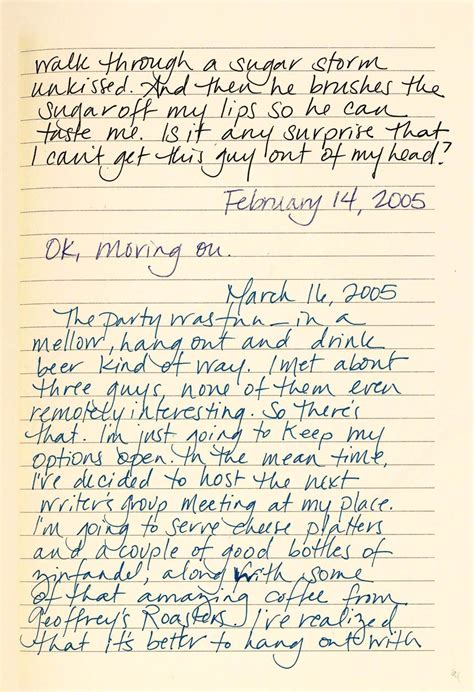 walk through a sugar storm
unkissed. And then he brushes the
sugar off my lips so he can
taste me. Is it any surprise that
I can't get this guy out of my head?
February 14, 2005
OK, moving on.
March 16, 2005
The party was fun – in a
mellow, hang out and drink
beer kind of way. I met about
three guys, none of them even
remotely interesting. So there's
that. I'm just going to keep my
options open. In the mean time,
I've decided to host the next
writer's group meeting at my place.
I'm going to serve cheese platters
and a couple of good bottles of
zinfandel, along with some
of that amazing coffee from
Geoffrey's Roasters. I've realized
that it's better to hang out with